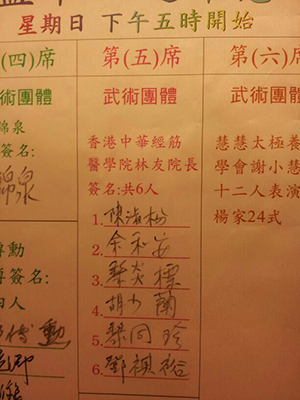 星期日 下午五時開始
(四)席
武術團體
錦泉
簽名:
錦泉
勳
簽名:
四人
傅勳
第(五)席
武術團體
香港中華經筋
醫學院林友院長
簽名:共6人
1.
2. 余和安
3. 琴炎標
4. 胡少蘭
5.
6. 鄧祺裕
第(六)席
武術團體
慧慧太極養
學會謝小慧
十二人表演
楊家24式